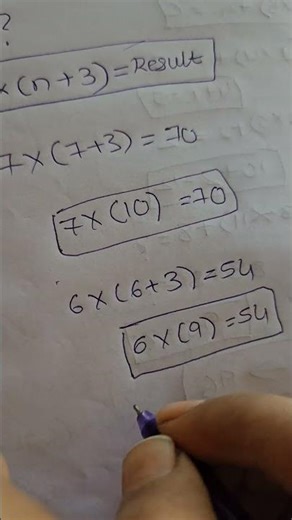 ?
x (n+3) = Result
7 x (7+3) = 70
7 x (10) = 70
6 x (6+3) = 54
6 x (9) = 54